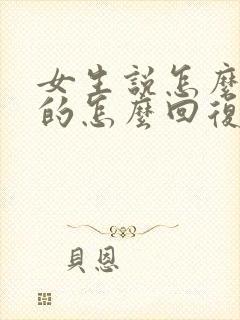 女生説怎麼
的怎麼回復
貝恩